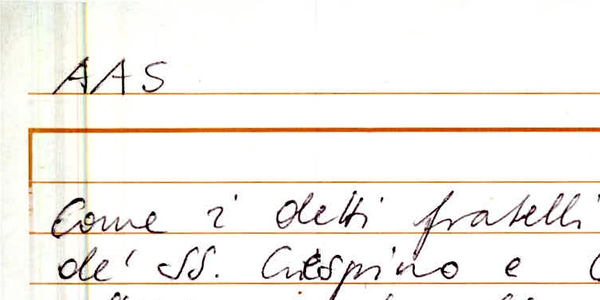 AAS
Come i detti fratelli
de' SS. Crespino e C